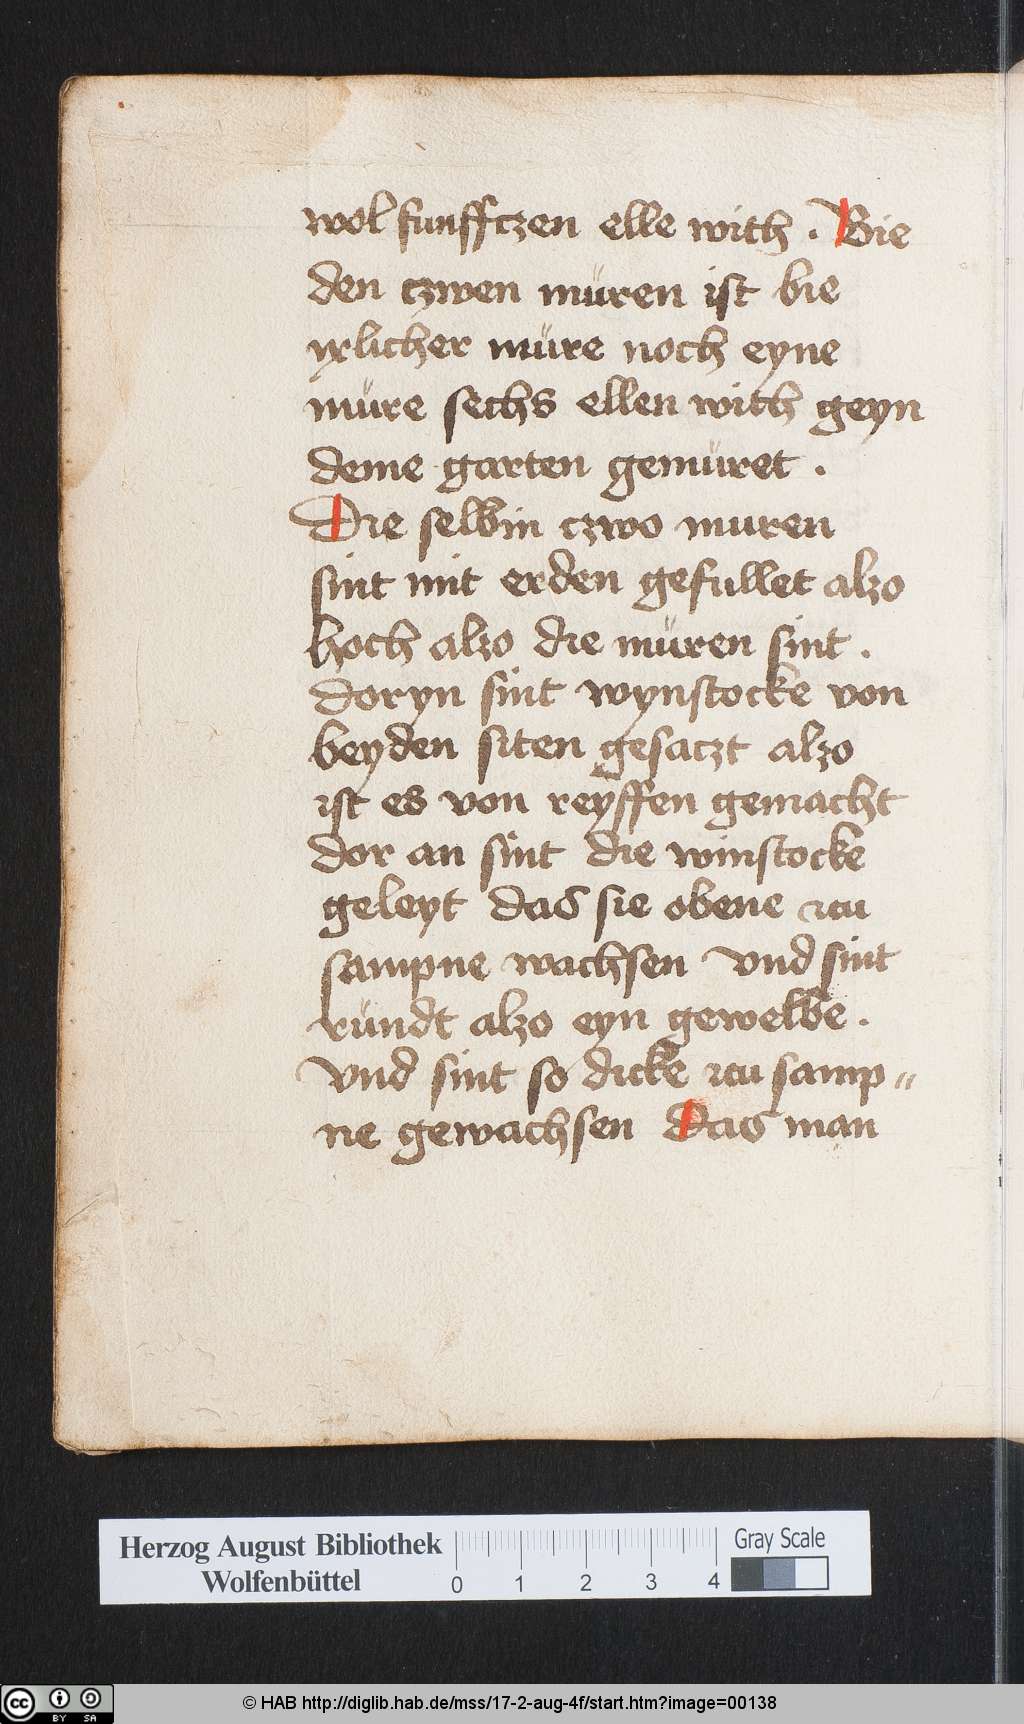 wol funffczen elle with . Bie
den czwen müren ist bie
yrlicher müre noch eyne
müre sechs ellen with geyn
deme garten gemüret .
Die selbin czwo muren
sint mit erden gefullet alzo
hoch alzo die müren sint .
doryn sint wynstocke von
beyden siten gesaczt alzo
ist es von reyffen gemacht
dor an sint die winstocke
geleyt das sie obene zcu
sampne wachsen vnd sint
ründt alzo eyn gewelbe .
vnd sint so dicke zcu samp„
ne gewachsen das man
Herzog August Bibliothek
Wolfenbüttel
0 1 2 3 4
Gray Scale
cc BY SA
© HAB http://diglib.hab.de/mss/17-2-aug-4f/start.htm?image=00138